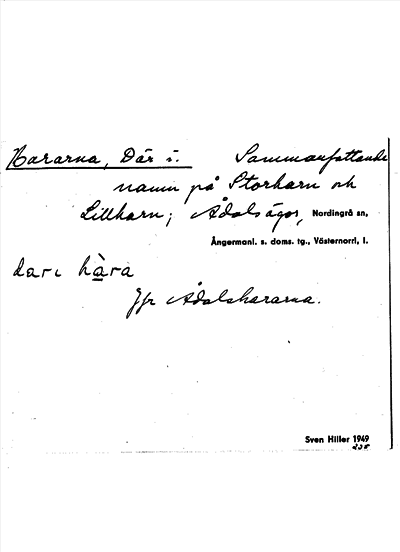 Hararna, Där i. Sammanfattande
namn på Storharn och
Lillharn; Ådalsägor, Nordingrå sn,
Ångermanl. s. doms. tg., Västernorrl. l.
dari hàra
Jfr Ådalshararna.
Sven Hiller 1949